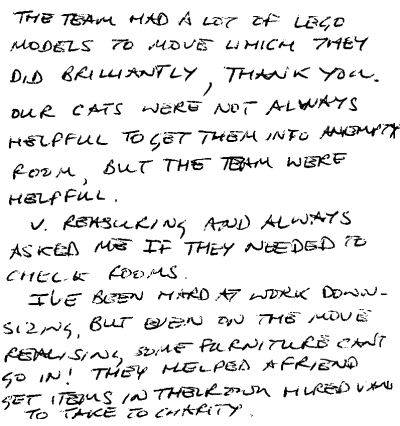 THE TEAM HAD A LOT OF LEGO
MODELS TO MOVE WHICH THEY
DID BRILLIANTLY, THANK YOU.
OUR CATS WERE NOT ALWAYS
HELPFUL TO GET THEM INTO AN EMPTY
ROOM, BUT THE TEAM WERE
HELPFUL.
V. REASSURING AND ALWAYS
ASKED ME IF THEY NEEDED TO
CHECK ROOMS.
I'VE BEEN HARD AT WORK DOWN-
SIZING, BUT EVEN ON THE MOVE
REALISING, SOME FURNITURE CAN'T
GO IN! THEY HELPED A FRIEND
GET ITEMS IN THEIR OWN HIRED VAN
TO TAKE TO CHARITY.